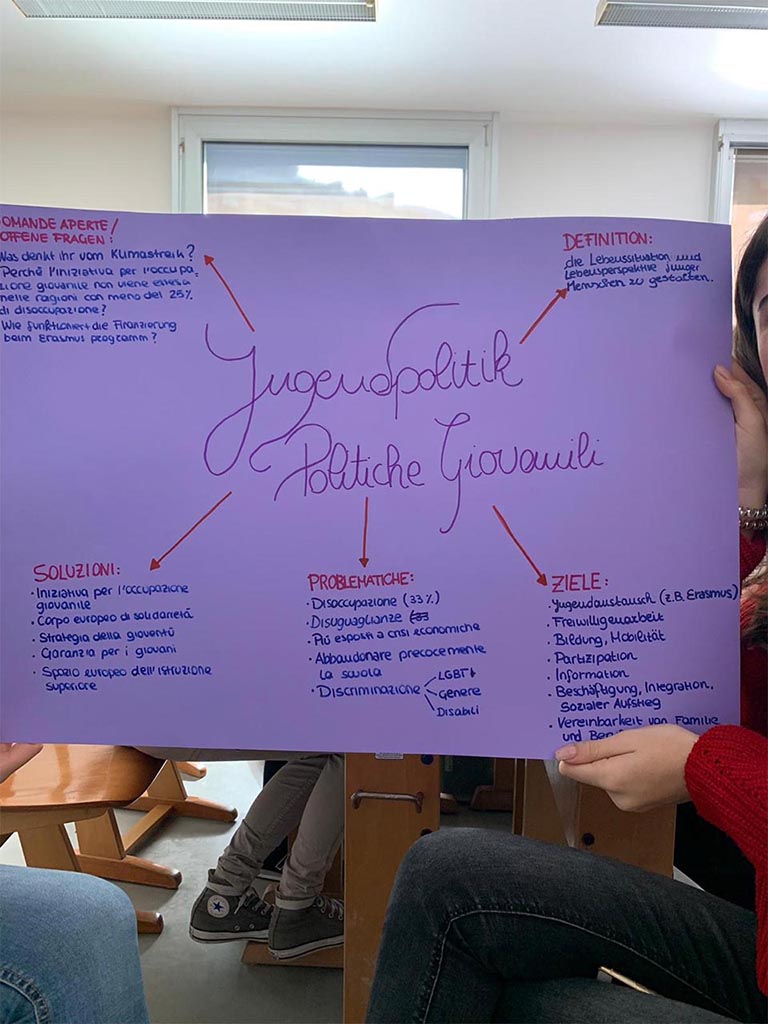 OMANDE APERTE/
OFFENE FRAGEN:
Was denkt ihr vom Klimastreik?
Perché l'iniziativa per l'occupa-
zione giovanile non viene estesa
nelle ragioni con meno del 25%
di disoccupazione?
Wie funktioniert die Finanzierung
beim Erasmus programm?
DEFINITION:
die Lebenssituation und
Lebensperspektive junger
Menschen zu gestalten.
Jugendpolitik
Politiche Giovanili
SOLUZIONI:
· Iniziativa per l'occupazione
giovanile
· Corpo europeo di solidarietà
· Strategia della gioventù
· Garanzia per i giovani
· Spazio europeo dell'istruzione
superiore
PROBLEMATICHE:
· Disoccupazione (33%)
· Disuguaglianze
· Più esposti a crisi economiche
· Abbandonare precocemente
la scuola
· Discriminazione
LGBT+
Genere
Disabili
ZIELE:
· Jugendaustausch (z.B. Erasmus)
· Freiwilligenarbeit
· Bildung, Mobilität
· Partizipation
· Information
· Beschäftigung, Integration,
Sozialer Aufstieg
· Vereinbarkeit von Familie
und